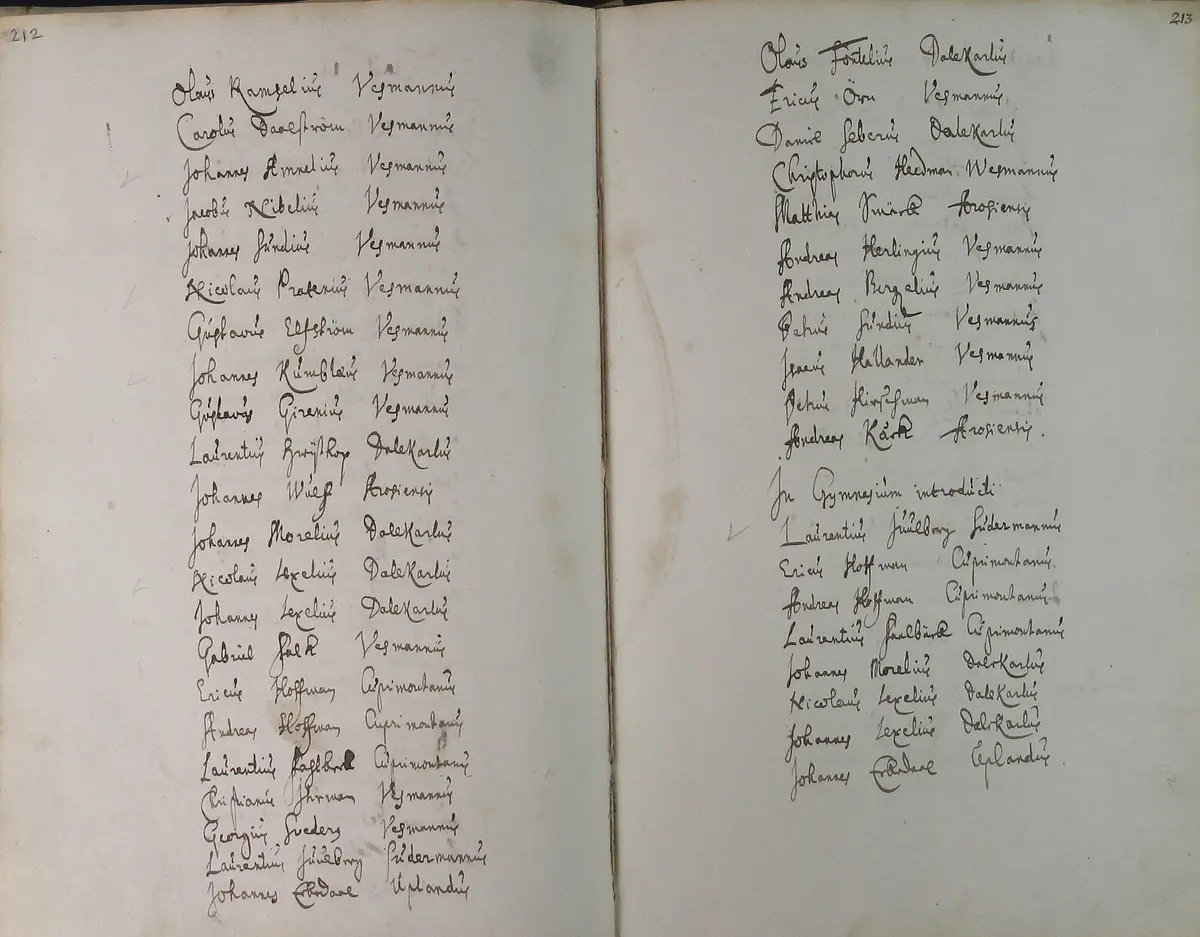 212
Olaus Ramzelius Vesmannus
Carolus Daalström Vesmannus
Johannes Amnelius Vesmannus
Jacobus Nibelius Vesmannus
Johannes Sundius Vesmannus
Nicolaus Pratenius Vesmannus
Gustavus Elfström Vesmannus
Johannes Kumblæus Vesmannus
Gustavus Girenius Vesmannus
Laurentius Dalekarlus
Johannes Wulf Arosiensis
Johannes Morelius Dalekarlus
Nicolaus Lexelius Dalekarlus
Johannes Lexelius Dalekarlus
Gabriel Falk Vesmannus
Ericus Hoffman Cuprimontanus
Andreas Hoffman Cuprimontanus
Laurentius Cuprimontanus
Christianus Vesmannus
Georgius Sveders Vesmannus
Laurentius Juulberg Sudermannus
Johannes Uplandus
213
Olaus Fontelius Dalekarlus
Ericus Örn Vesmannus
Daniel Seberus Dalekarlus
Christophorus Hedman Wesmannus
Matthias Smärk Arosiensis
Andreas Herlingius Vesmannus
Andreas Bergelius Vesmannus
Petrus Sundius Vesmannus
Isacus Hallander Vesmannus
Petrus Hirschman Vesmannus
Andreas Kärk Arosiensis.
In Gymnasium introducti
Laurentius Juulberg Sudermannus
Ericus Hoffman Cuprimontanus.
Andreas Hoffman Cuprimontanus
Laurentius Cuprimontanus
Johannes Morelius Dalekarlus
Nicolaus Lexelius Dalekarlus
Johannes Lexelius Dalekarlus
Johannes Uplandus.